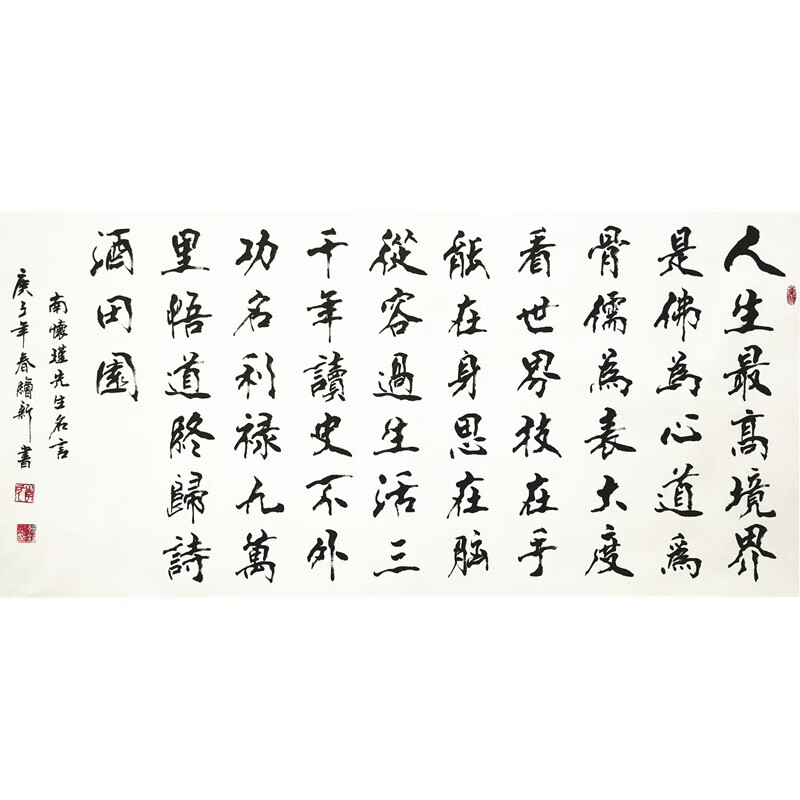 人生最高境界
是佛為心道爲
骨儒為表大度
看世界技在手
能在身思在腦
從容過生活三
千年讀史不外
功名利禄九萬
里悟道終歸詩
酒田園
南懷瑾先生名言
庚子年春繪新書